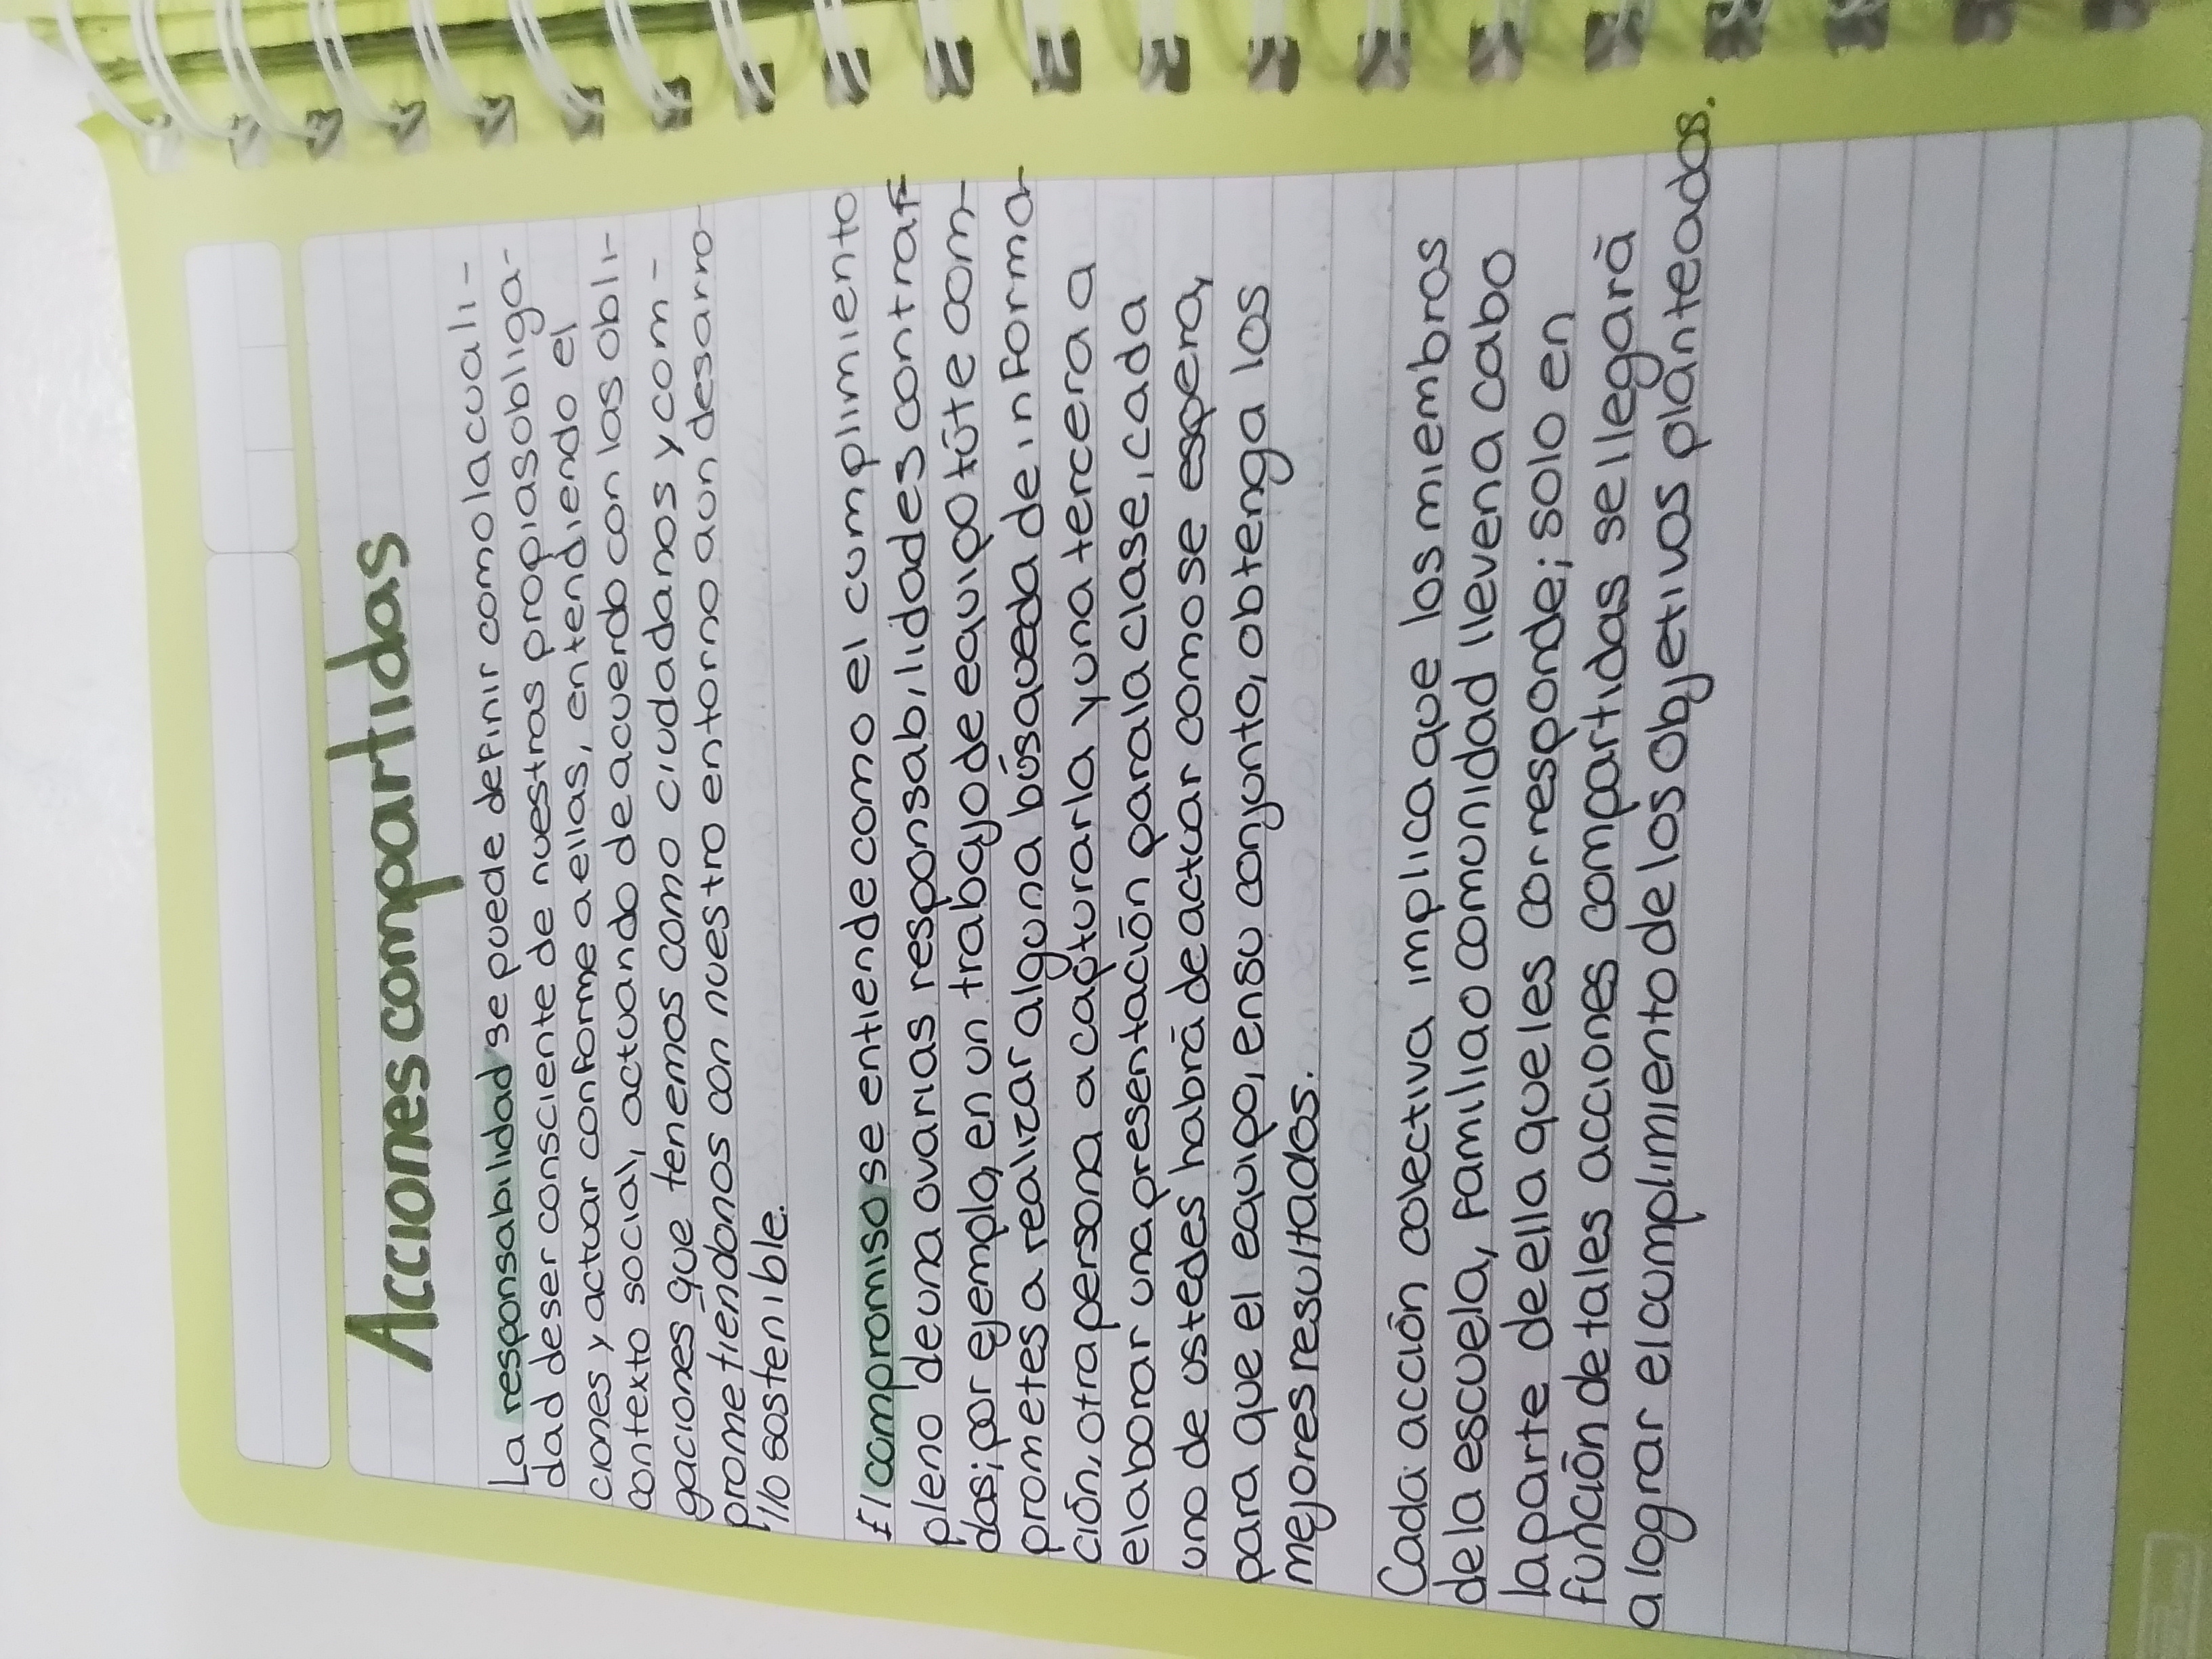 Acciones compartidas
La responsabilidad se puede definir como la cuali-
dad de ser consciente de nuestras propias obliga-
ciones y actuar conforme a ellas, entendiendo el
contexto social, actuando de acuerdo con las obli-
gaciones que tenemos como ciudadanos y com-
prometiéndonos con nuestro entorno a un desarro-
llo sostenible.
El compromiso se entiende como el cumplimiento
pleno de una o varias responsabilidades contraí-
das; por ejemplo, en un trabajo de equipo tú te com-
prometes a realizar alguna búsqueda de informa-
ción, otra persona a capturarla y una tercera a
elaborar una presentación para la clase, cada
uno de ustedes habrá de actuar como se espera,
para que el equipo, en su conjunto, obtenga los
mejores resultados.
Cada acción colectiva implica que los miembros
de la escuela, familia o comunidad lleven a cabo
la parte de ella que les corresponde; solo en
función de tales acciones compartidas se llegará
a lograr el cumplimiento de los objetivos planteados.